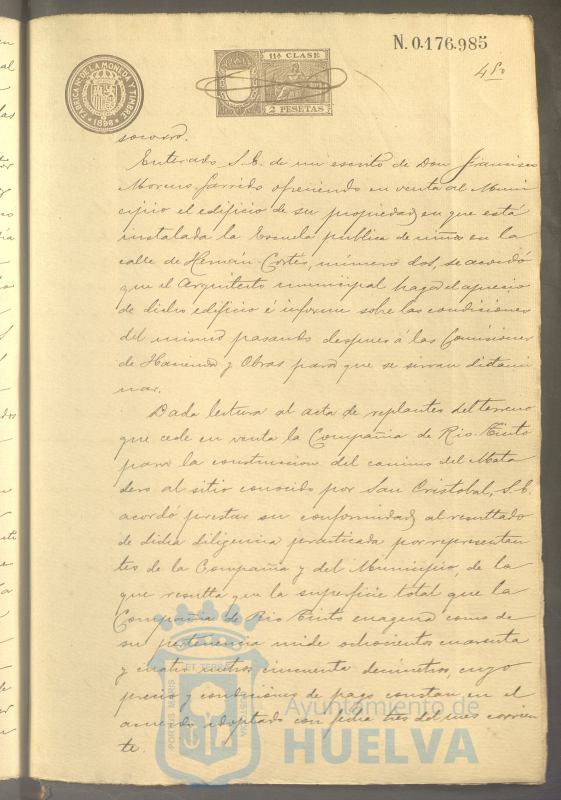 N. 0.176.985
11ª CLASE
2 PESETAS
FÁBRICA NAL DE LA MONEDA Y TIMBRE
1898
socorro.
Enterado S.E. de un escrito de Don Francisco
Moreno Garrido ofreciendo en venta al Muni
cipio el edificio de su propiedad en que está
instalada la Escuela publica de niños en la
calle de Hernán Cortés, número dos, se acordó
que el Arquitecto municipal haga el aprecio
de dicho edificio é informe sobre las condiciones
del mismo pasando despues á las Comisiones
de Hacienda y Obras para que se sirvan dictami
nar.
Dada lectura al acta de replanteo del terreno
que cede en venta la Compañia de Rio-Tinto
para la construccion del camino del Mata
dero al sitio conocido por San Cristobal, S.E.
acordó prestar su conformidad al resultado
de dicha diligencia practicada por representan
tes de la Compañia y del Municipio, de la
que resulta que la superficie total que la
Compañia de Rio Tinto enagena como de
su pertenencia mide ochocientos cuarenta
y cuatro metros cincuenta decimetros, cuyo
precio y condiciones de pago constan en el
acuerdo adoptado con fecha tres del mes corrien
te.
PORTUS MARIS ET TERRAE CUSTODIA
Ayuntamiento de
HUELVA